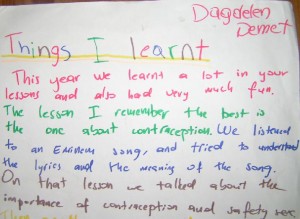 Dagdelen
Demet
Things I learnt
This year we learnt a lot in your
lessons and also had very much fun.
The lesson I remember the best is
the one about contraception. We listened
to an Eminem song, and tried to understand
the lyrics and the meaning of the song.
On that lesson we talked about the
importance of contraception and safety sex